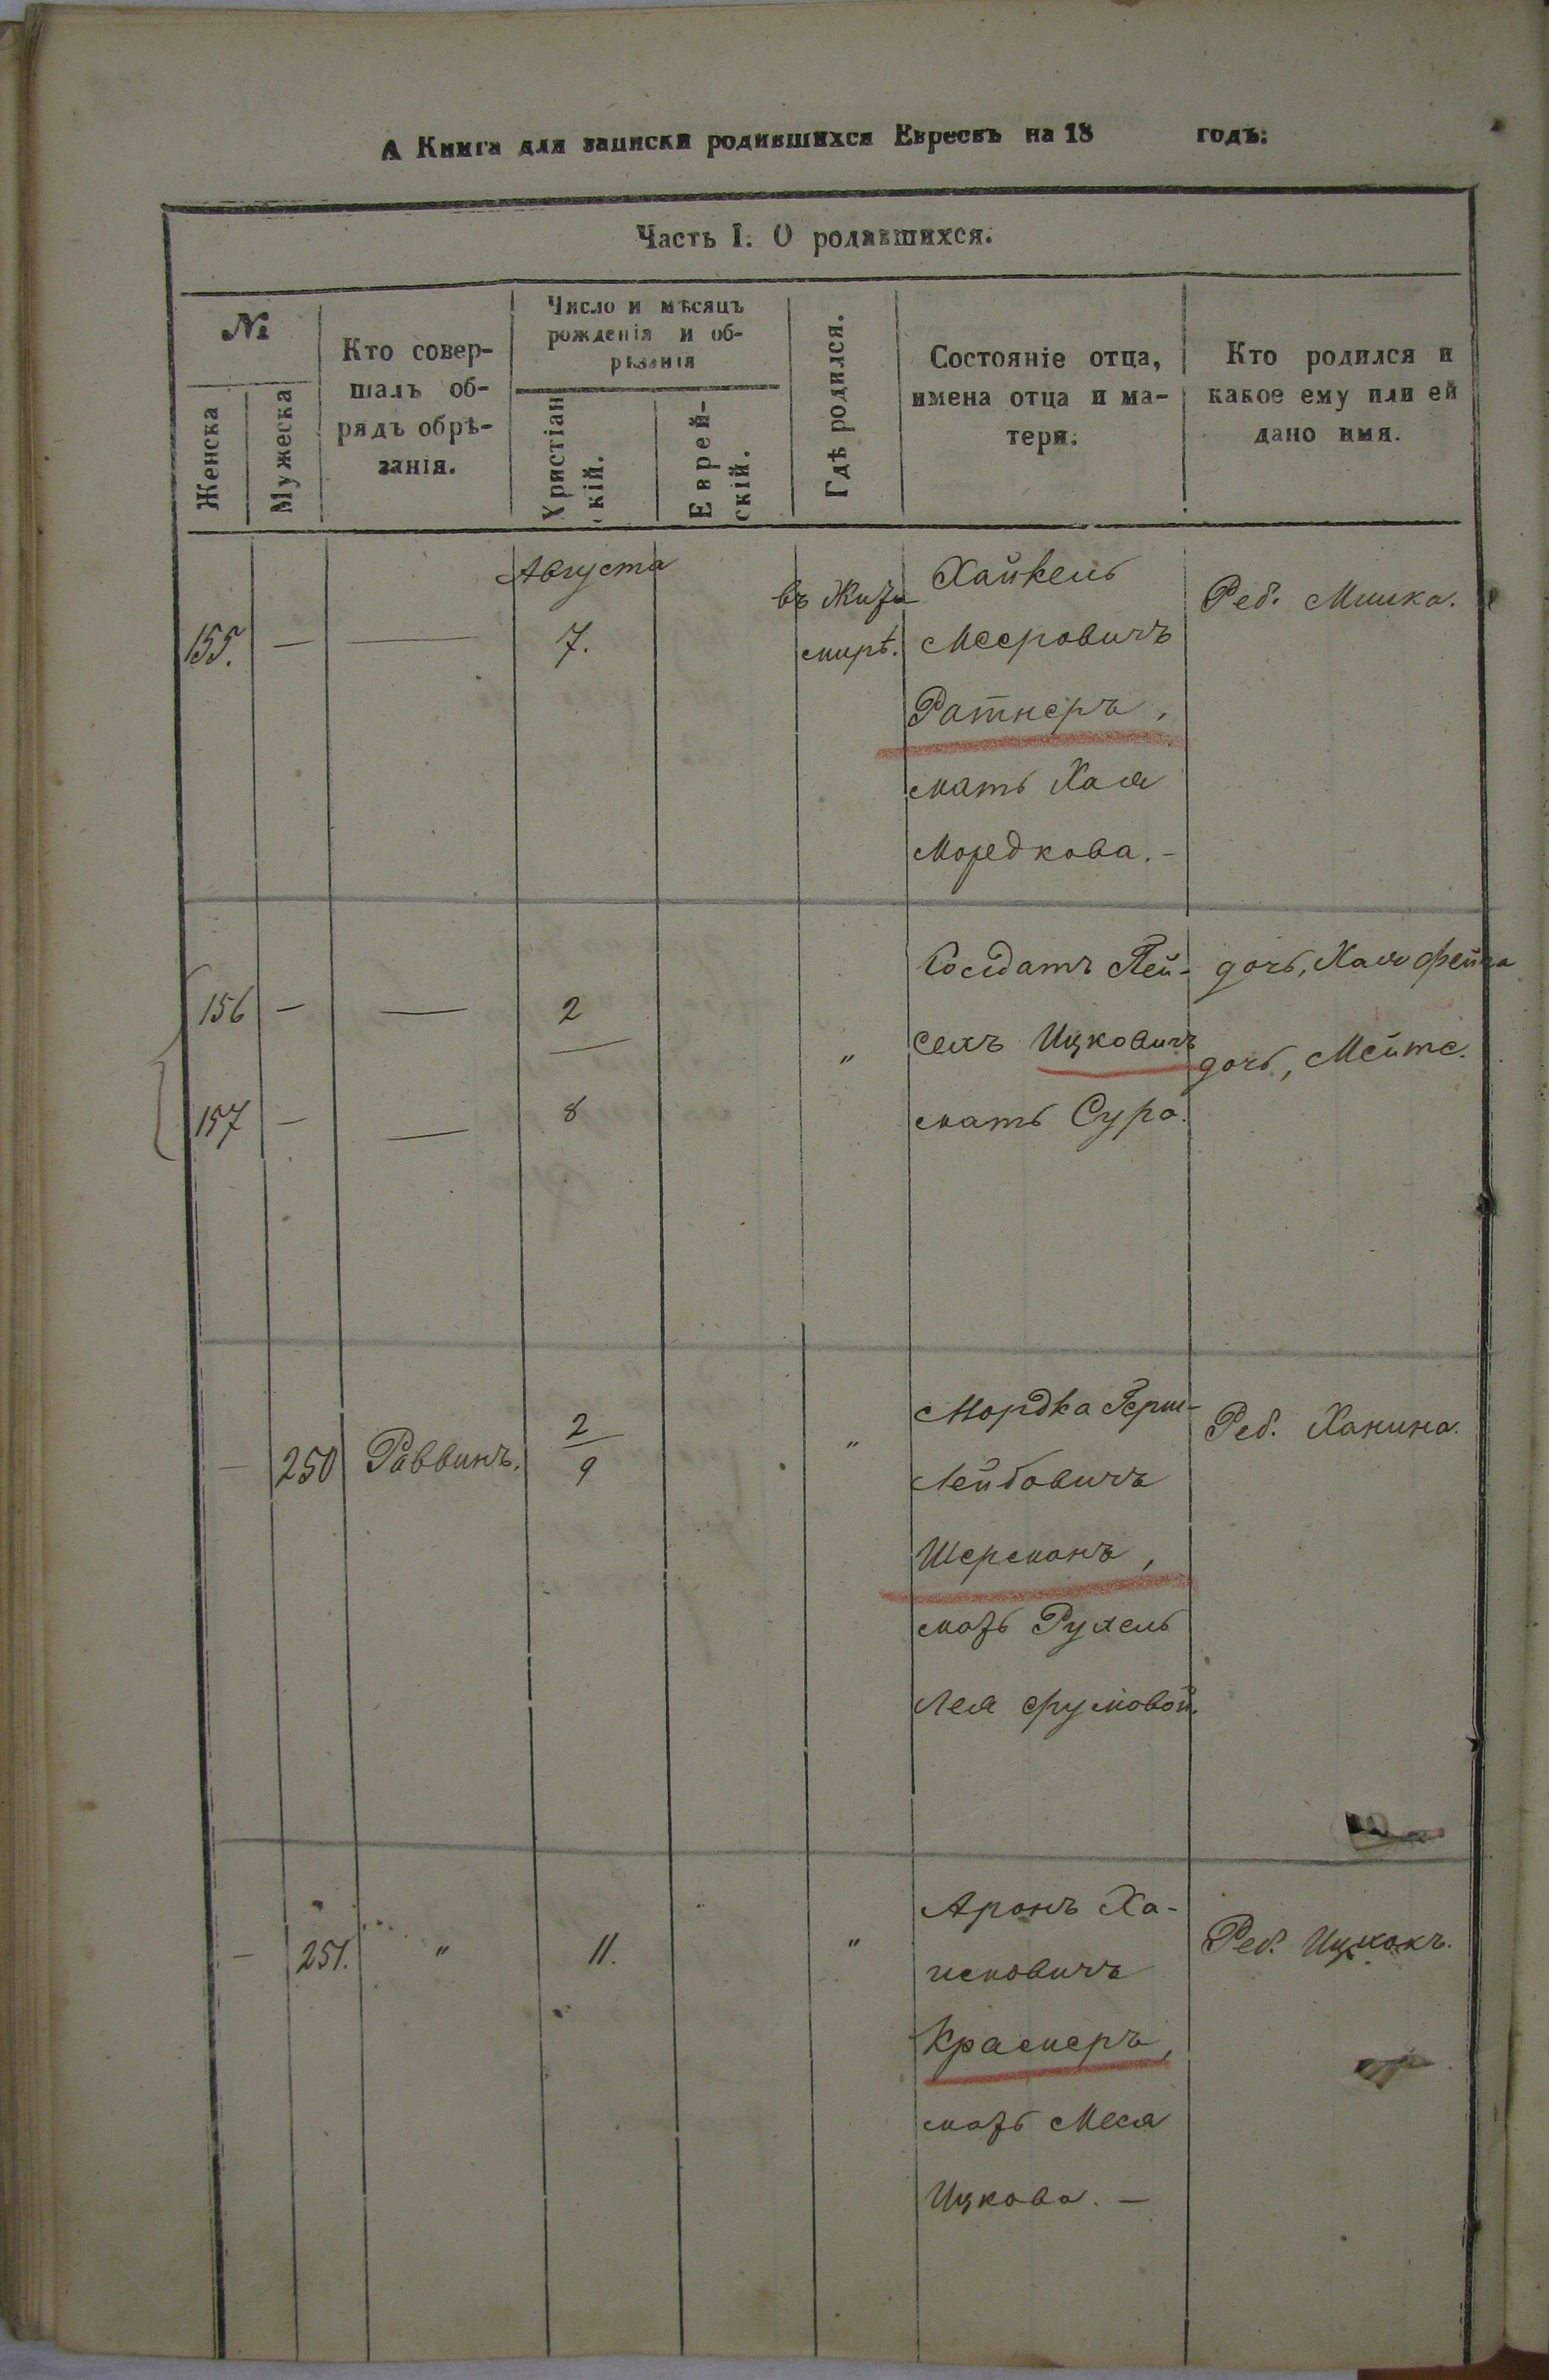 А Книга для записки родившихся Евреевъ на 18 годъ:
Часть I. О родившихся.
№
Женска
Мужеска
Кто совер-
шалъ об-
рядъ обрѣ-
занія.
Число и мѣсяцъ
рожденія и об-
рѣзанія
Христіан
скій.
Еврей-
скій.
Гдѣ родился.
Состояніе отца,
имена отца и ма-
тери.
Кто родился и
какое ему или ей
дано имя.
Августа
155. — — 7.
въ Жито
мирѣ.
Хайкель
Мееровичъ
Ратнеръ,
мать Хая
Мордкова. -
Реб. Минка.
156 — — 2
157 — — 8
"
Солдатъ Пей-
сахъ Ицковичъ
мать Сура.
дочь, Хая Фейга
дочь, Мейте.
— 250 Раввинъ. 2
9
"
Мордка Герш-
Лейбовичъ
Шерманъ,
мать Рухель
Лея Фрумовой.
Реб. Ханина.
— 251. " 11. "
Аронъ Ха-
имовичъ
Крамеръ,
мать Меся
Ицкова. —
Реб. Ицхокъ.